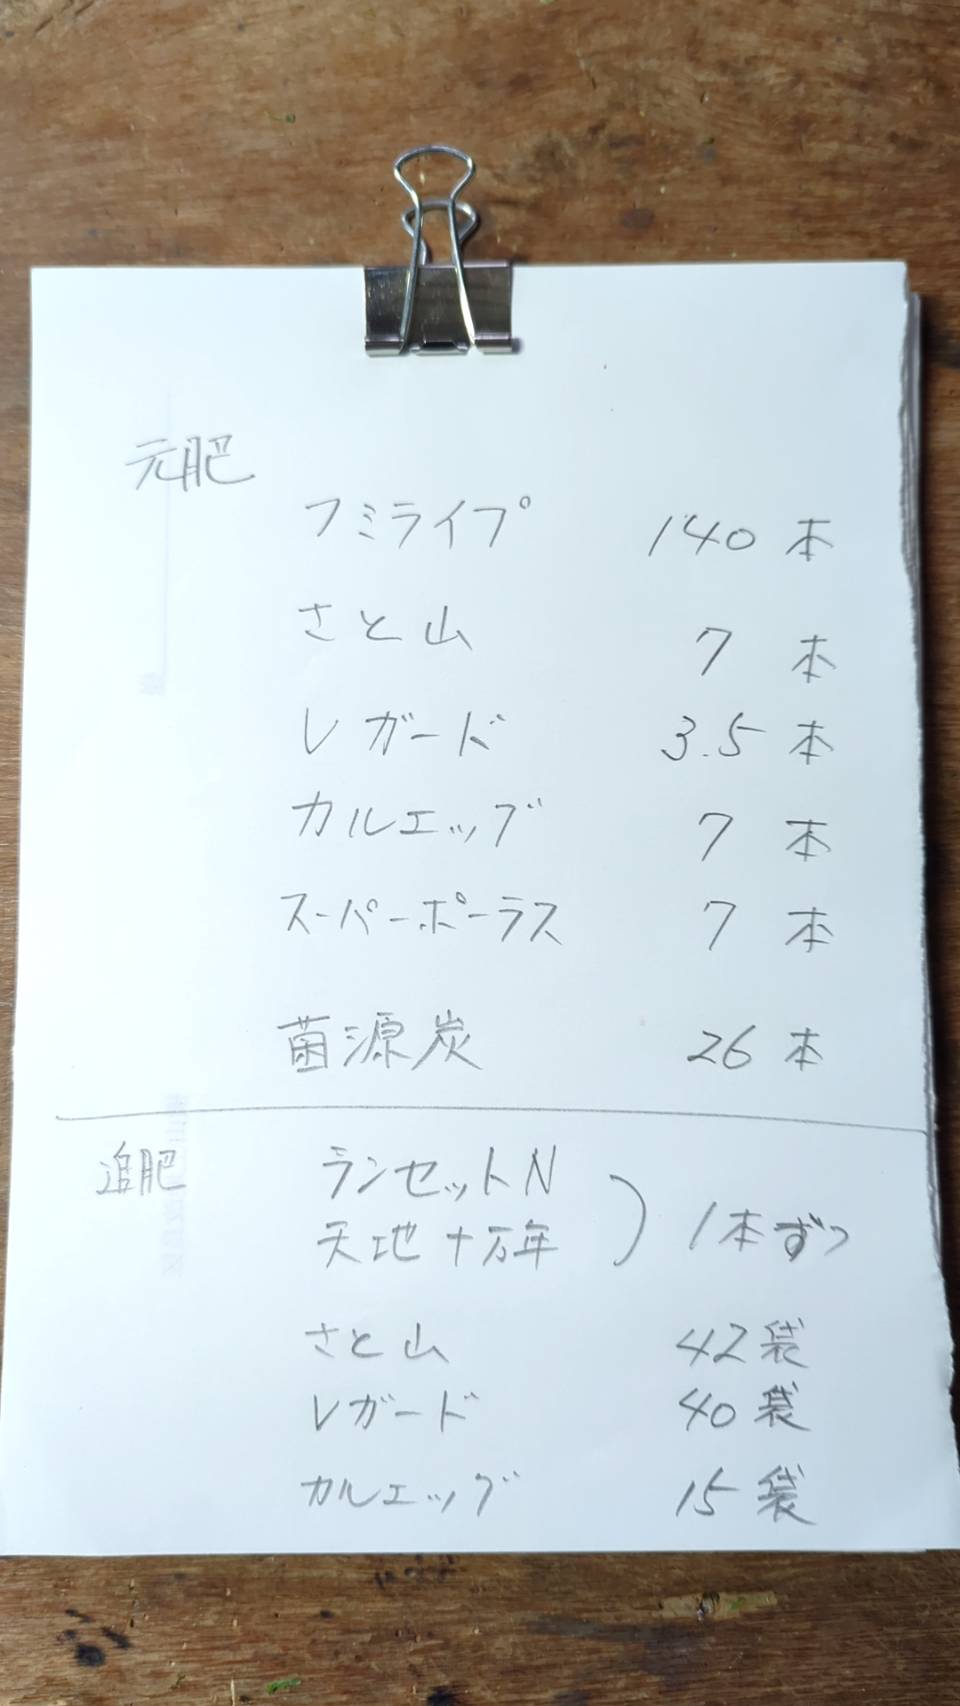 元肥
フミライプ 140 本
さと山 7 本
レガード 3.5 本
カルエッグ 7 本
スーパーポーラス 7 本
菌源炭 26 本
追肥 ランセットN
天地十万年 ) 1本ずつ
さと山 42袋
レガード 40袋
カルエッグ 15袋